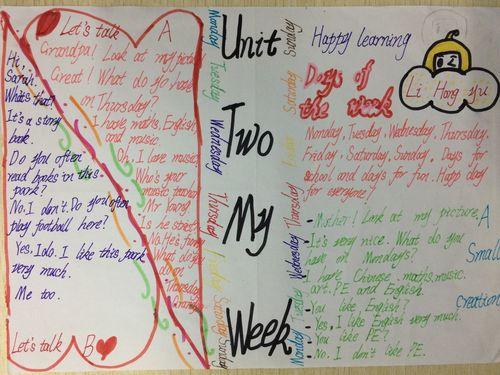 Let's talk A
Grandpa! Look at my picture
Great! What do you have
on Thursday?
I have, maths, English
and music.
Oh, I love music
Who's your
music teacher
Mr Young
Is he strict
No. He's funny
What do you
do on
Thursday
Hi,
Sarah.
What's that,
It's a story
book.
Do you often
read books in this
park?
No. I don't. Do you often
play football here?
Yes, I do. I like this park
very much.
Me too.
Let's talk B
Monday
Tuesday
Wednesday
Thursday
Saturday
Sunday
Unit
Two
My
Week
Sunday
Saturday
Thursday
Wednesday
Tuesday
Monday
Happy learning
Li Hang yu
Days of
the week
Monday, Tuesday, Wednesday, Thursday.
Friday, Saturday, Sunday. Days for
school and days for fun. Happy days
for everyone!
Mother! Look at my picture,
It's very nice. What do you
have on Mondays?
I have Chinese, maths, music.
art. PE and English.
You like English?
Yes, I like English very much.
You like PE?
No. I don't like PE.
A
Small
creation